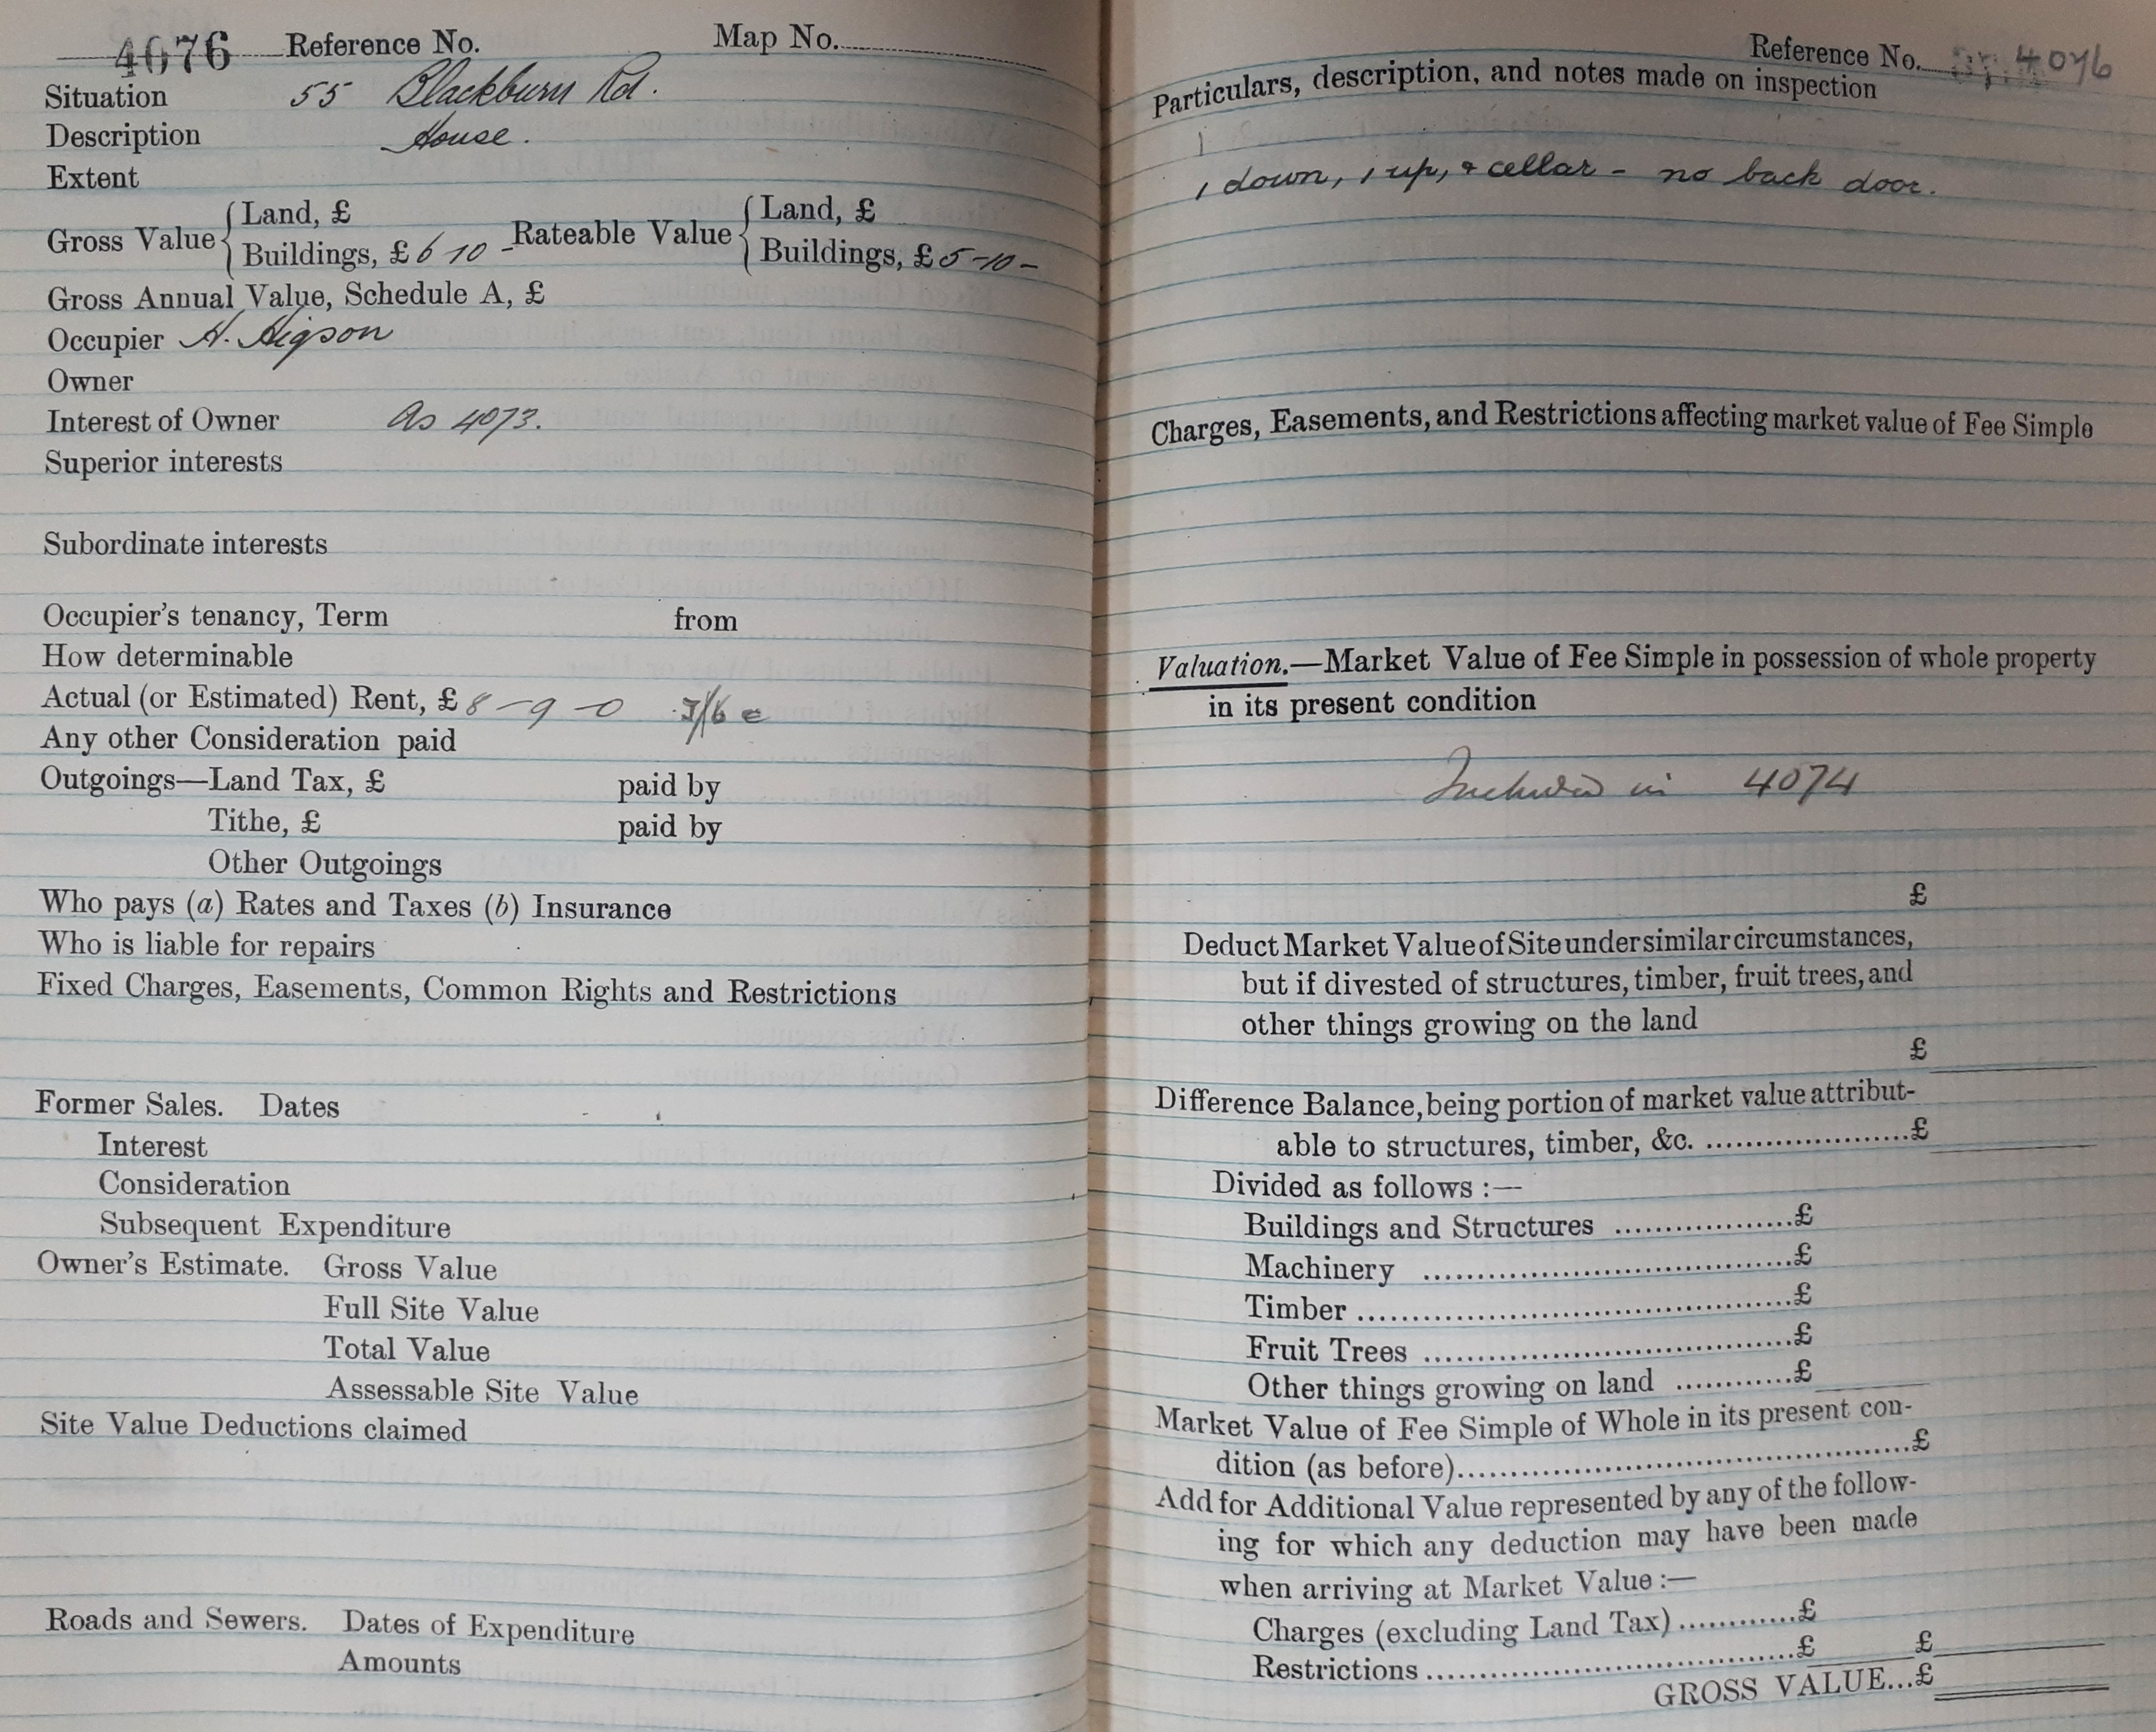 4076 Reference No. Map No.
Situation 55 Blackburn Rd.
Description House.
Extent
Gross Value { Land, £ Rateable Value { Land, £
Buildings, £ 6 10 - Buildings, £ 5-10-
Gross Annual Value, Schedule A, £
Occupier H. Higson
Owner
Interest of Owner As 4073.
Superior interests
Subordinate interests
Occupier's tenancy, Term from
How determinable
Actual (or Estimated) Rent, £ 8-9-0
Any other Consideration paid
Outgoings—Land Tax, £ paid by
Tithe, £ paid by
Other Outgoings
Who pays (a) Rates and Taxes (b) Insurance
Who is liable for repairs
Fixed Charges, Easements, Common Rights and Restrictions
Former Sales. Dates
Interest
Consideration
Subsequent Expenditure
Owner's Estimate. Gross Value
Full Site Value
Total Value
Assessable Site Value
Site Value Deductions claimed
Roads and Sewers. Dates of Expenditure
Amounts
Reference No. 4076
Particulars, description, and notes made on inspection
1 down, 1 up, & cellar - no back door.
Charges, Easements, and Restrictions affecting market value of Fee Simple
Valuation.—Market Value of Fee Simple in possession of whole property
in its present condition
Included in 4074
£
Deduct Market Value of Site under similar circumstances,
but if divested of structures, timber, fruit trees, and
other things growing on the land
£
Difference Balance, being portion of market value attribut-
able to structures, timber, &c. ......................£
Divided as follows :—
Buildings and Structures ..................£
Machinery ......................................£
Timber ............................................£
Fruit Trees ......................................£
Other things growing on land ............£
Market Value of Fee Simple of Whole in its present con-
dition (as before)................................................£
Add for Additional Value represented by any of the follow-
ing for which any deduction may have been made
when arriving at Market Value :—
Charges (excluding Land Tax) ............£
Restrictions ......................................£ £
GROSS VALUE...£